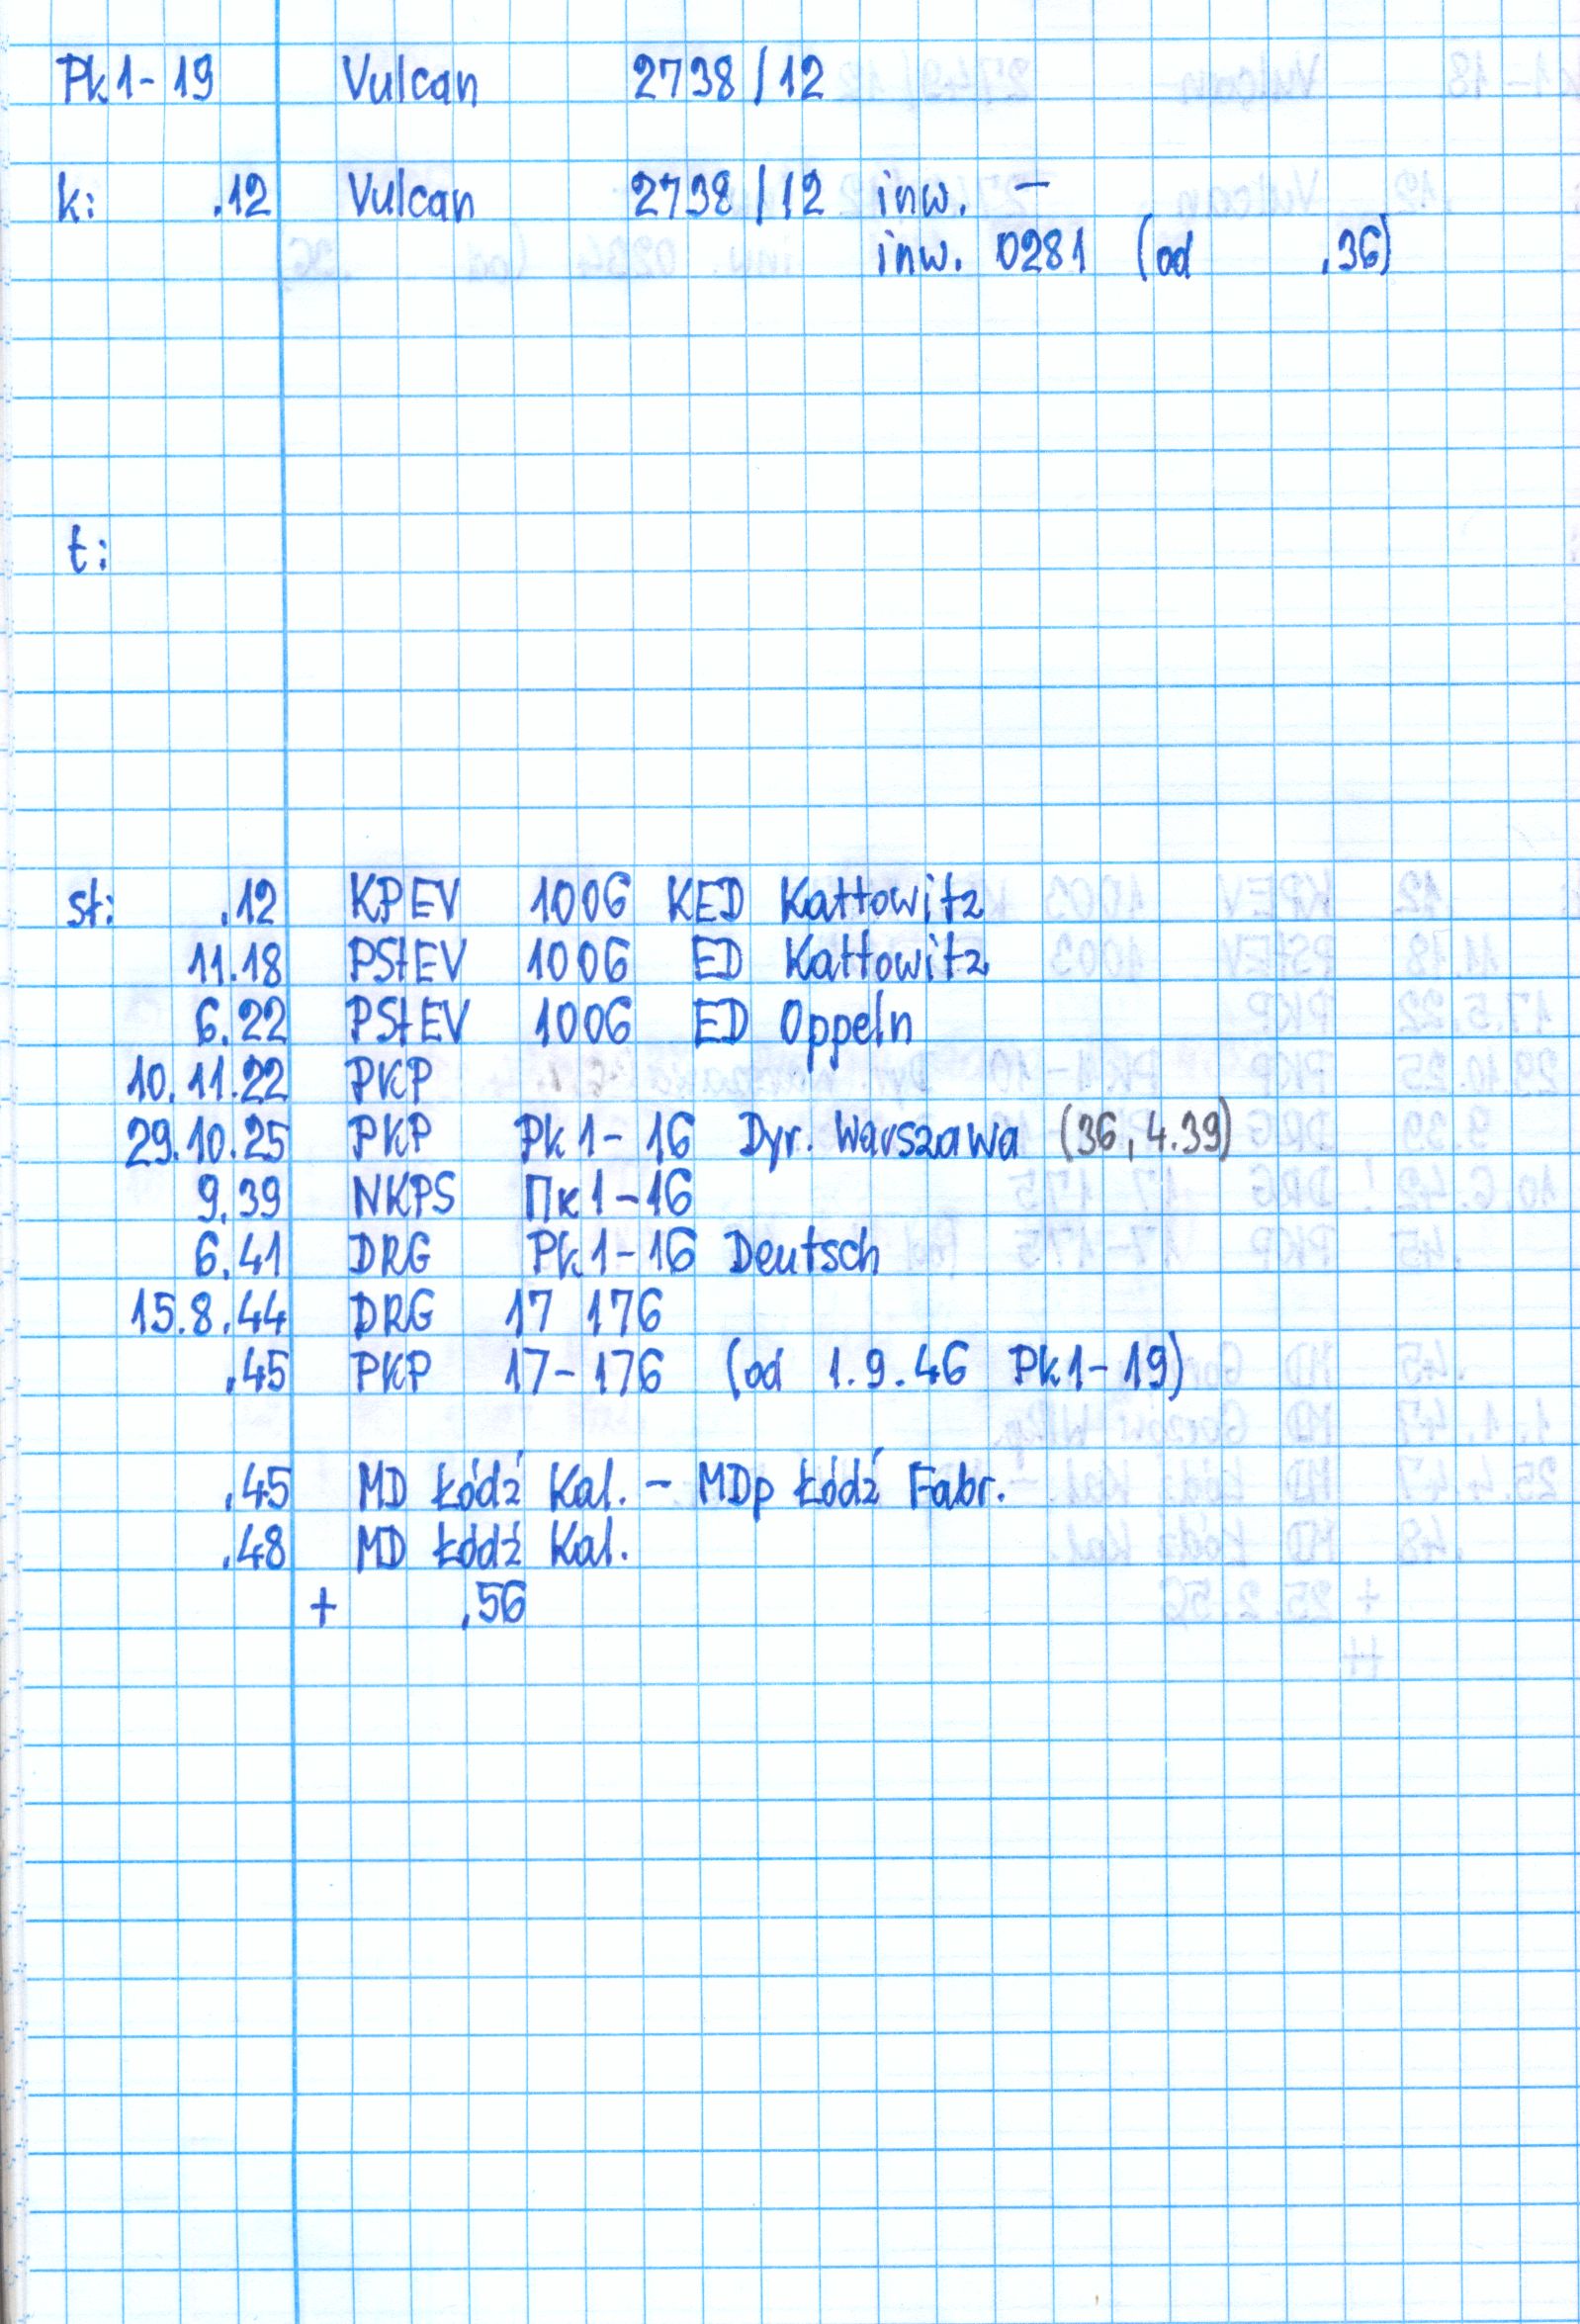 Pk1-19 Vulcan 2738/12
k: .12 Vulcan 2738/12 inw. –
inw. 0281 (od .36)
t:
st: .12 KPEV 1006 KED Kattowitz
11.18 PStEV 1006 ED Kattowitz
6.22 PStEV 1006 ED Oppeln
10.11.22 PKP
29.10.25 PKP Pk1-16 Dyr. Warszawa (36, 4.39)
9.39 NKPS Пк1-16
6.41 DRG Pk1-16 Deutsch
15.8.44 DRG 17 176
.45 PKP 17-176 (od 1.9.46 Pk1-19)
.45 MD Łódź Kal. – MDp Łódź Fabr.
.48 MD Łódź Kal.
+ .56